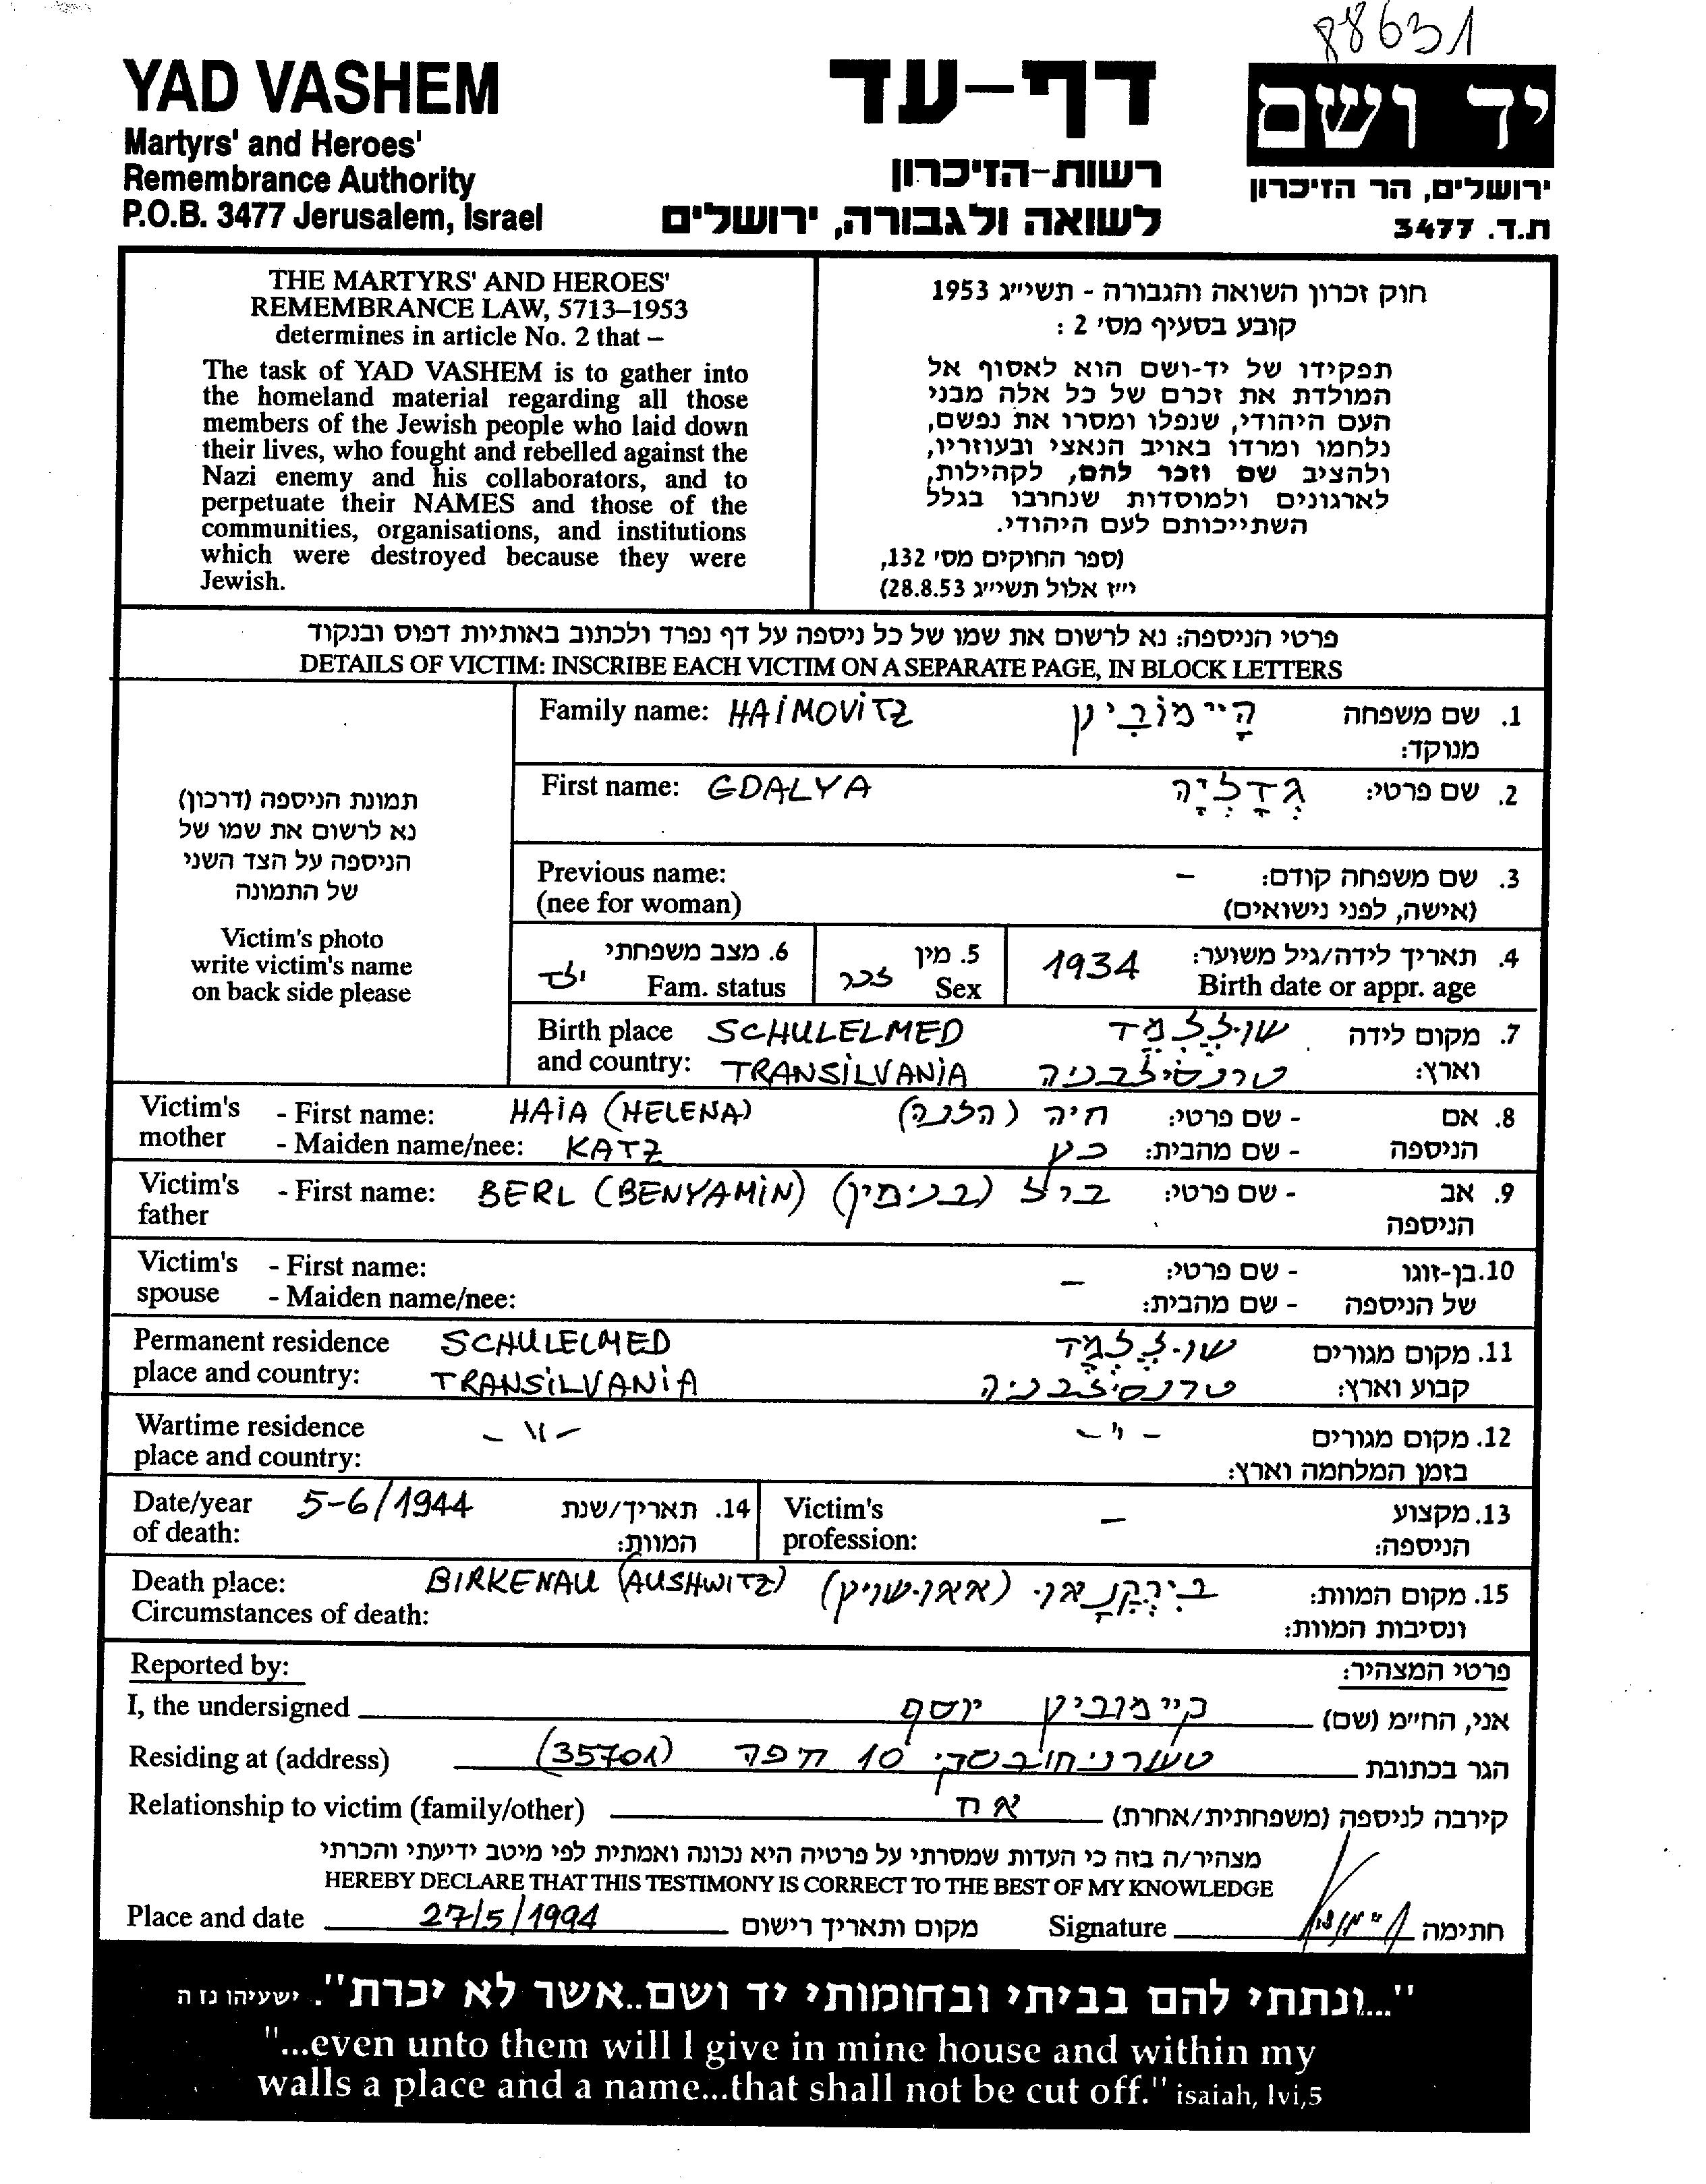 88631
YAD VASHEM
Martyrs' and Heroes'
Remembrance Authority
P.O.B. 3477 Jerusalem, Israel
דף-עד
רשות-הזיכרון
לשואה ולגבורה, ירושלים
יד ושם
ירושלים, הר הזיכרון
ת.ד. 3477
THE MARTYRS' AND HEROES'
REMEMBRANCE LAW, 5713–1953
determines in article No. 2 that –
The task of YAD VASHEM is to gather into
the homeland material regarding all those
members of the Jewish people who laid down
their lives, who fought and rebelled against the
Nazi enemy and his collaborators, and to
perpetuate their NAMES and those of the
communities, organisations, and institutions
which were destroyed because they were
Jewish.
חוק זכרון השואה והגבורה - תשי״ג 1953
קובע בסעיף מס׳ 2 :
תפקידו של יד-ושם הוא לאסוף אל
המולדת את זכרם של כל אלה מבני
העם היהודי, שנפלו ומסרו את נפשם,
נלחמו ומרדו באויב הנאצי ובעוזריו,
ולהציב שם וזכר להם, לקהילות,
לארגונים ולמוסדות שנחרבו בגלל
השתייכותם לעם היהודי.
(ספר החוקים מס׳ 132,
י״ז אלול תשי״ג 28.8.53)
פרטי הניספה: נא לרשום את שמו של כל ניספה על דף נפרד ולכתוב באותיות דפוס ובנקוד
DETAILS OF VICTIM: INSCRIBE EACH VICTIM ON A SEPARATE PAGE, IN BLOCK LETTERS
תמונת הניספה (דרכון)
נא לרשום את שמו של
הניספה על הצד השני
של התמונה
Victim's photo
write victim's name
on back side please
Family name: HAIMOVITZ הָיימוֹבִיץ 1. שם משפחה
מנוקד:
First name: GDALYA גְדָלְיָה 2. שם פרטי:
Previous name: – 3. שם משפחה קודם:
(nee for woman) (אישה, לפני נישואים)
6. מצב משפחתי ילד Fam. status
5. מין זכר Sex
4. תאריך לידה/גיל משוער: 1934
Birth date or appr. age
Birth place SCHULELMED שולֶלְמֶד 7. מקום לידה
and country: TRANSILVANIA טרנסילבניה וארץ:
Victim's - First name: HAIA (HELENA) חיה (הלנה) - שם פרטי: 8. אם
mother - Maiden name/nee: KATZ כץ - שם מהבית: הניספה
Victim's - First name: BERL (BENYAMIN) ברל (בנימין) - שם פרטי: 9. אב
father הניספה
Victim's - First name: - שם פרטי: 10. בן-זוגו
spouse - Maiden name/nee: – - שם מהבית: של הניספה
Permanent residence SCHULELMED שולֶלְמֶד 11. מקום מגורים
place and country: TRANSILVANIA טרנסילבניה קבוע וארץ:
Wartime residence – \\ – – " – 12. מקום מגורים
place and country: בזמן המלחמה וארץ:
Date/year 5-6/1944 14. תאריך/שנת
of death: המוות:
Victim's – 13. מקצוע
profession: הניספה:
Death place: BIRKENAU (AUSHWITZ) בִּירְקֶנָאו (אאושויץ) 15. מקום המוות:
Circumstances of death: ונסיבות המוות:
Reported by: פרטי המצהיר:
I, the undersigned היימוביץ יוסף אני, החי״מ (שם)
Residing at (address) טשרניחובסקי 10 חיפה (35701) הגר בכתובת
Relationship to victim (family/other) אח קירבה לניספה (משפחתית/אחרת)
מצהיר/ה בזה כי העדות שמסרתי על פרטיה היא נכונה ואמתית לפי מיטב ידיעתי והכרתי
HEREBY DECLARE THAT THIS TESTIMONY IS CORRECT TO THE BEST OF MY KNOWLEDGE
Place and date 27/5/1994 מקום ותאריך רישום Signature חתימה
"...ונתתי להם בביתי ובחומותי יד ושם..אשר לא יכרת". ישעיהו נז ה
"...even unto them will I give in mine house and within my
walls a place and a name...that shall not be cut off." isaiah, lvi,5